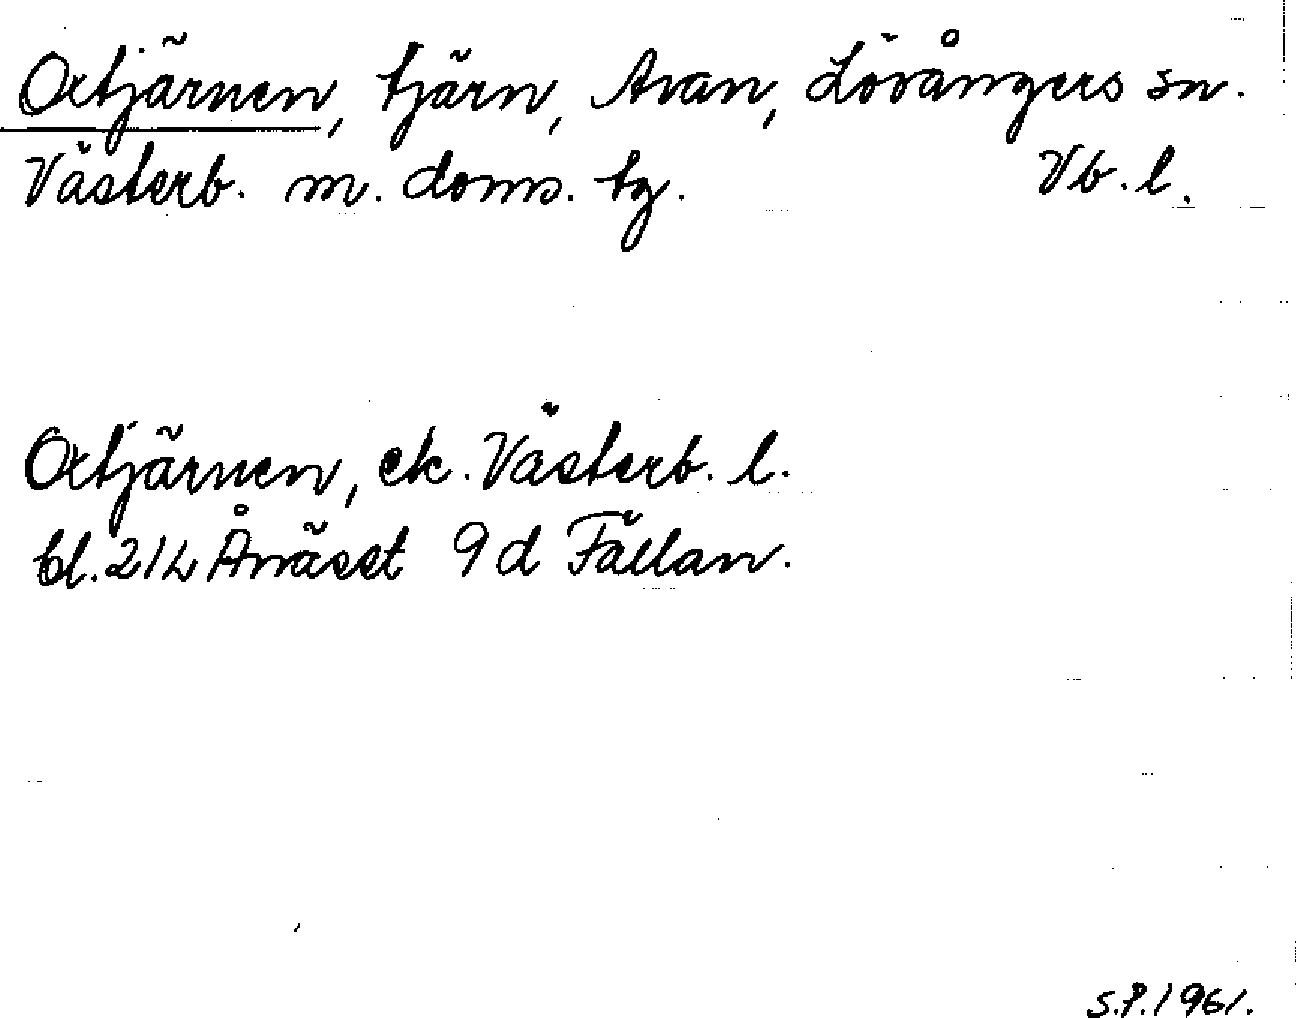 Oxtjärnen, tjärn, Avan, Lövångers sn.
Västerb. m. doms. tg. Vb. l.
Oxtjärnen, ek. Västerb. l.
bl. 21L Ånäset 9d Fällan.
S.P. 1961.